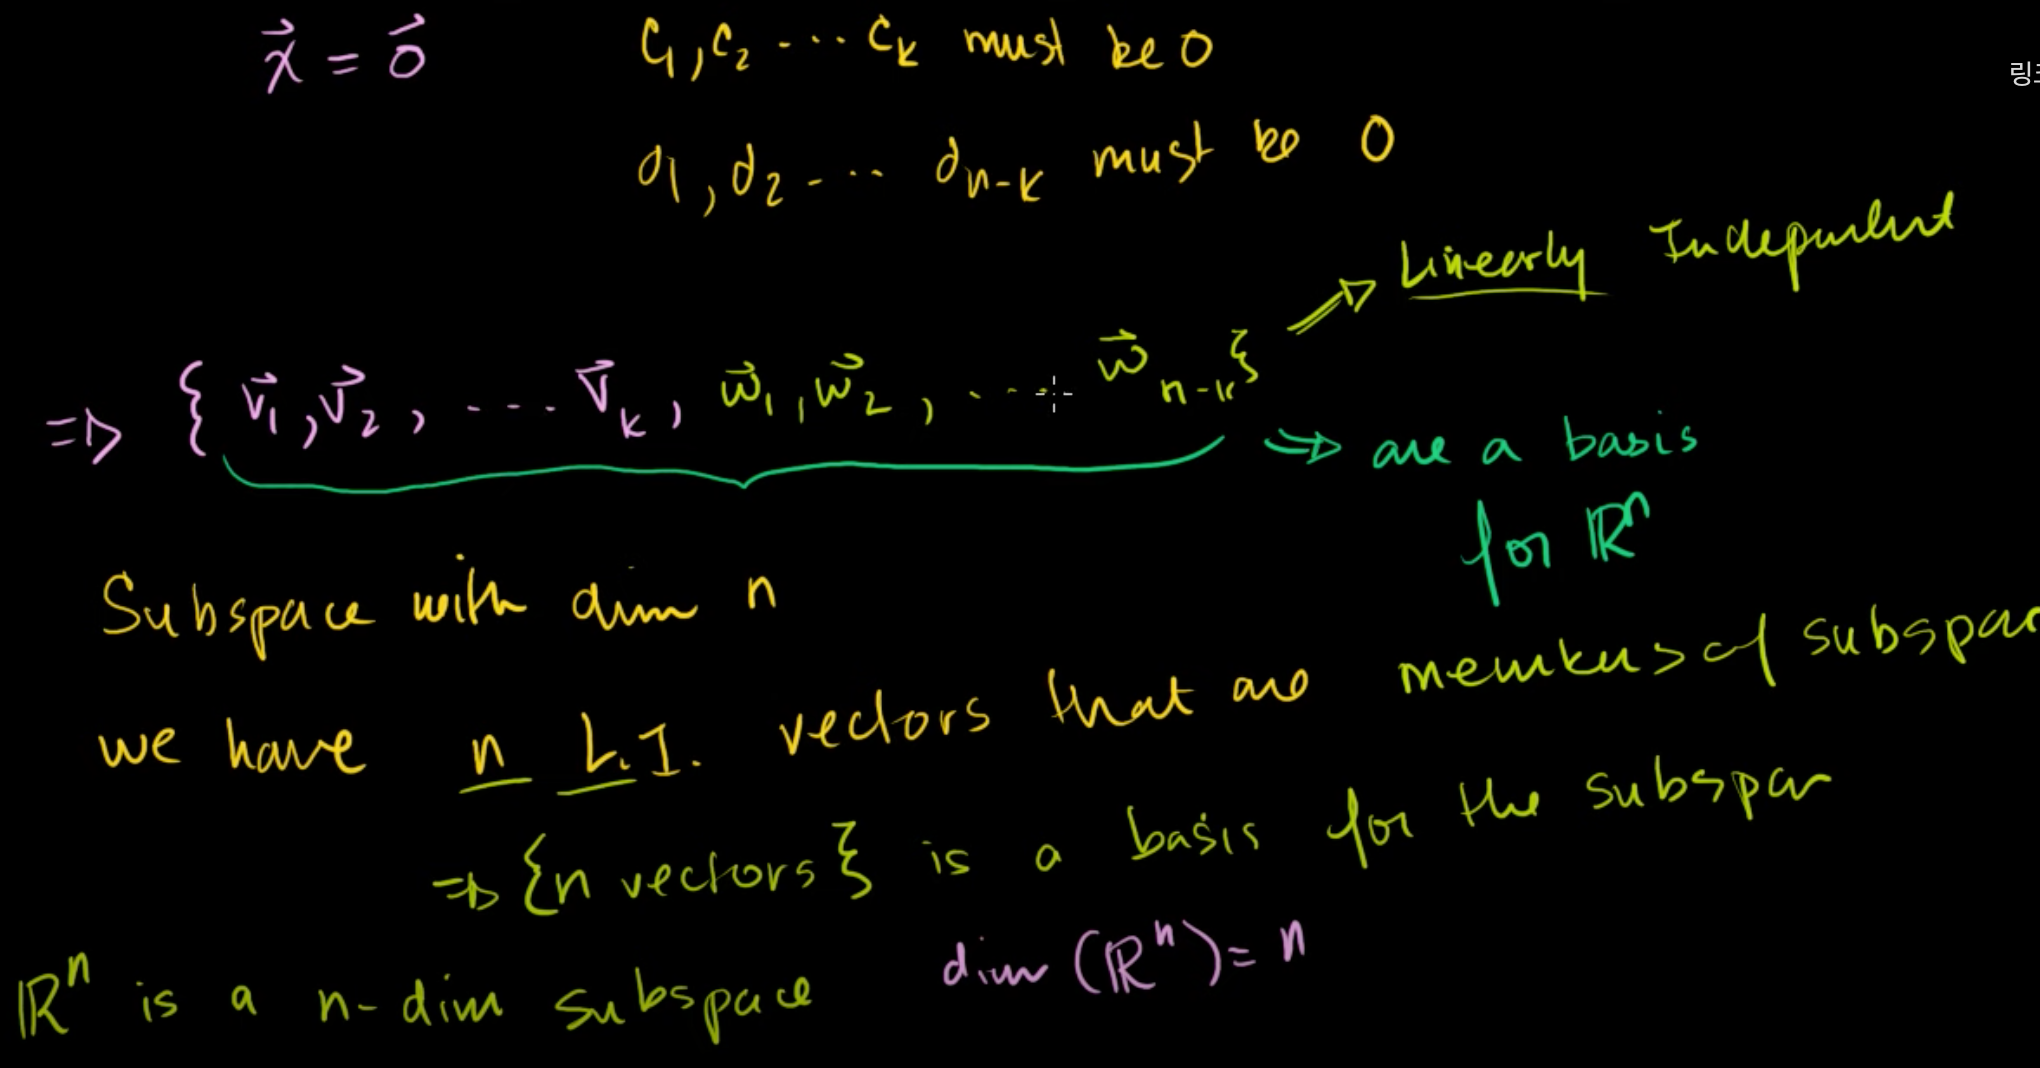 x⃗ = 0⃗ c₁, c₂ ... cₖ must be 0
링크
d₁, d₂ ... dₙ₋ₖ must be 0
⇒ Linearly Independent
⇒ { v⃗₁, v⃗₂, ... v⃗ₖ, w⃗₁, w⃗₂, ... w⃗ₙ₋ₖ }
⇒ are a basis
for ℝⁿ
Subspace with dim n
we have n L.I. vectors that are members of subspac
⇒ {n vectors} is a basis for the subspac
ℝⁿ is a n-dim subspace dim (ℝⁿ) = n